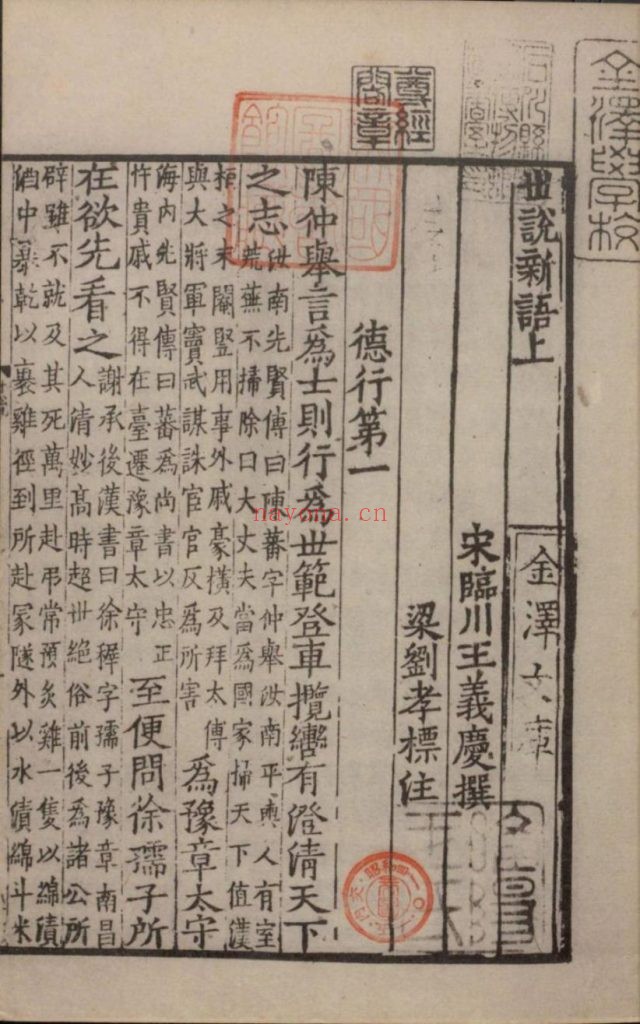 金澤學校
尊經閣章
世說新語上
金澤文庫
宋臨川王義慶撰
梁劉孝標注
德行第一
陳仲舉言爲士則行爲世範登車攬轡有澄清天下
之志
汝南先賢傳曰陳蕃字仲舉汝南平輿人有室
荒蕪不掃除曰大丈夫當爲國家掃天下值漢
桓之末閹豎用事外戚豪橫及拜太傅
與大將軍竇武謀誅宦官反爲所害
爲豫章太守
海內先賢傳曰蕃爲尚書以忠正
忤貴戚不得在臺遷豫章太守
至便問徐孺子所
在欲先看之
謝承後漢書曰徐穉字孺子豫章南昌
人清妙高時超世絕俗前後爲諸公所
辟雖不就及其死萬里赴弔常預炙雞一隻以綿漬
酒中暴乾以裹雞徑到所赴冢隧外以水漬綿斗米
nayona.cn